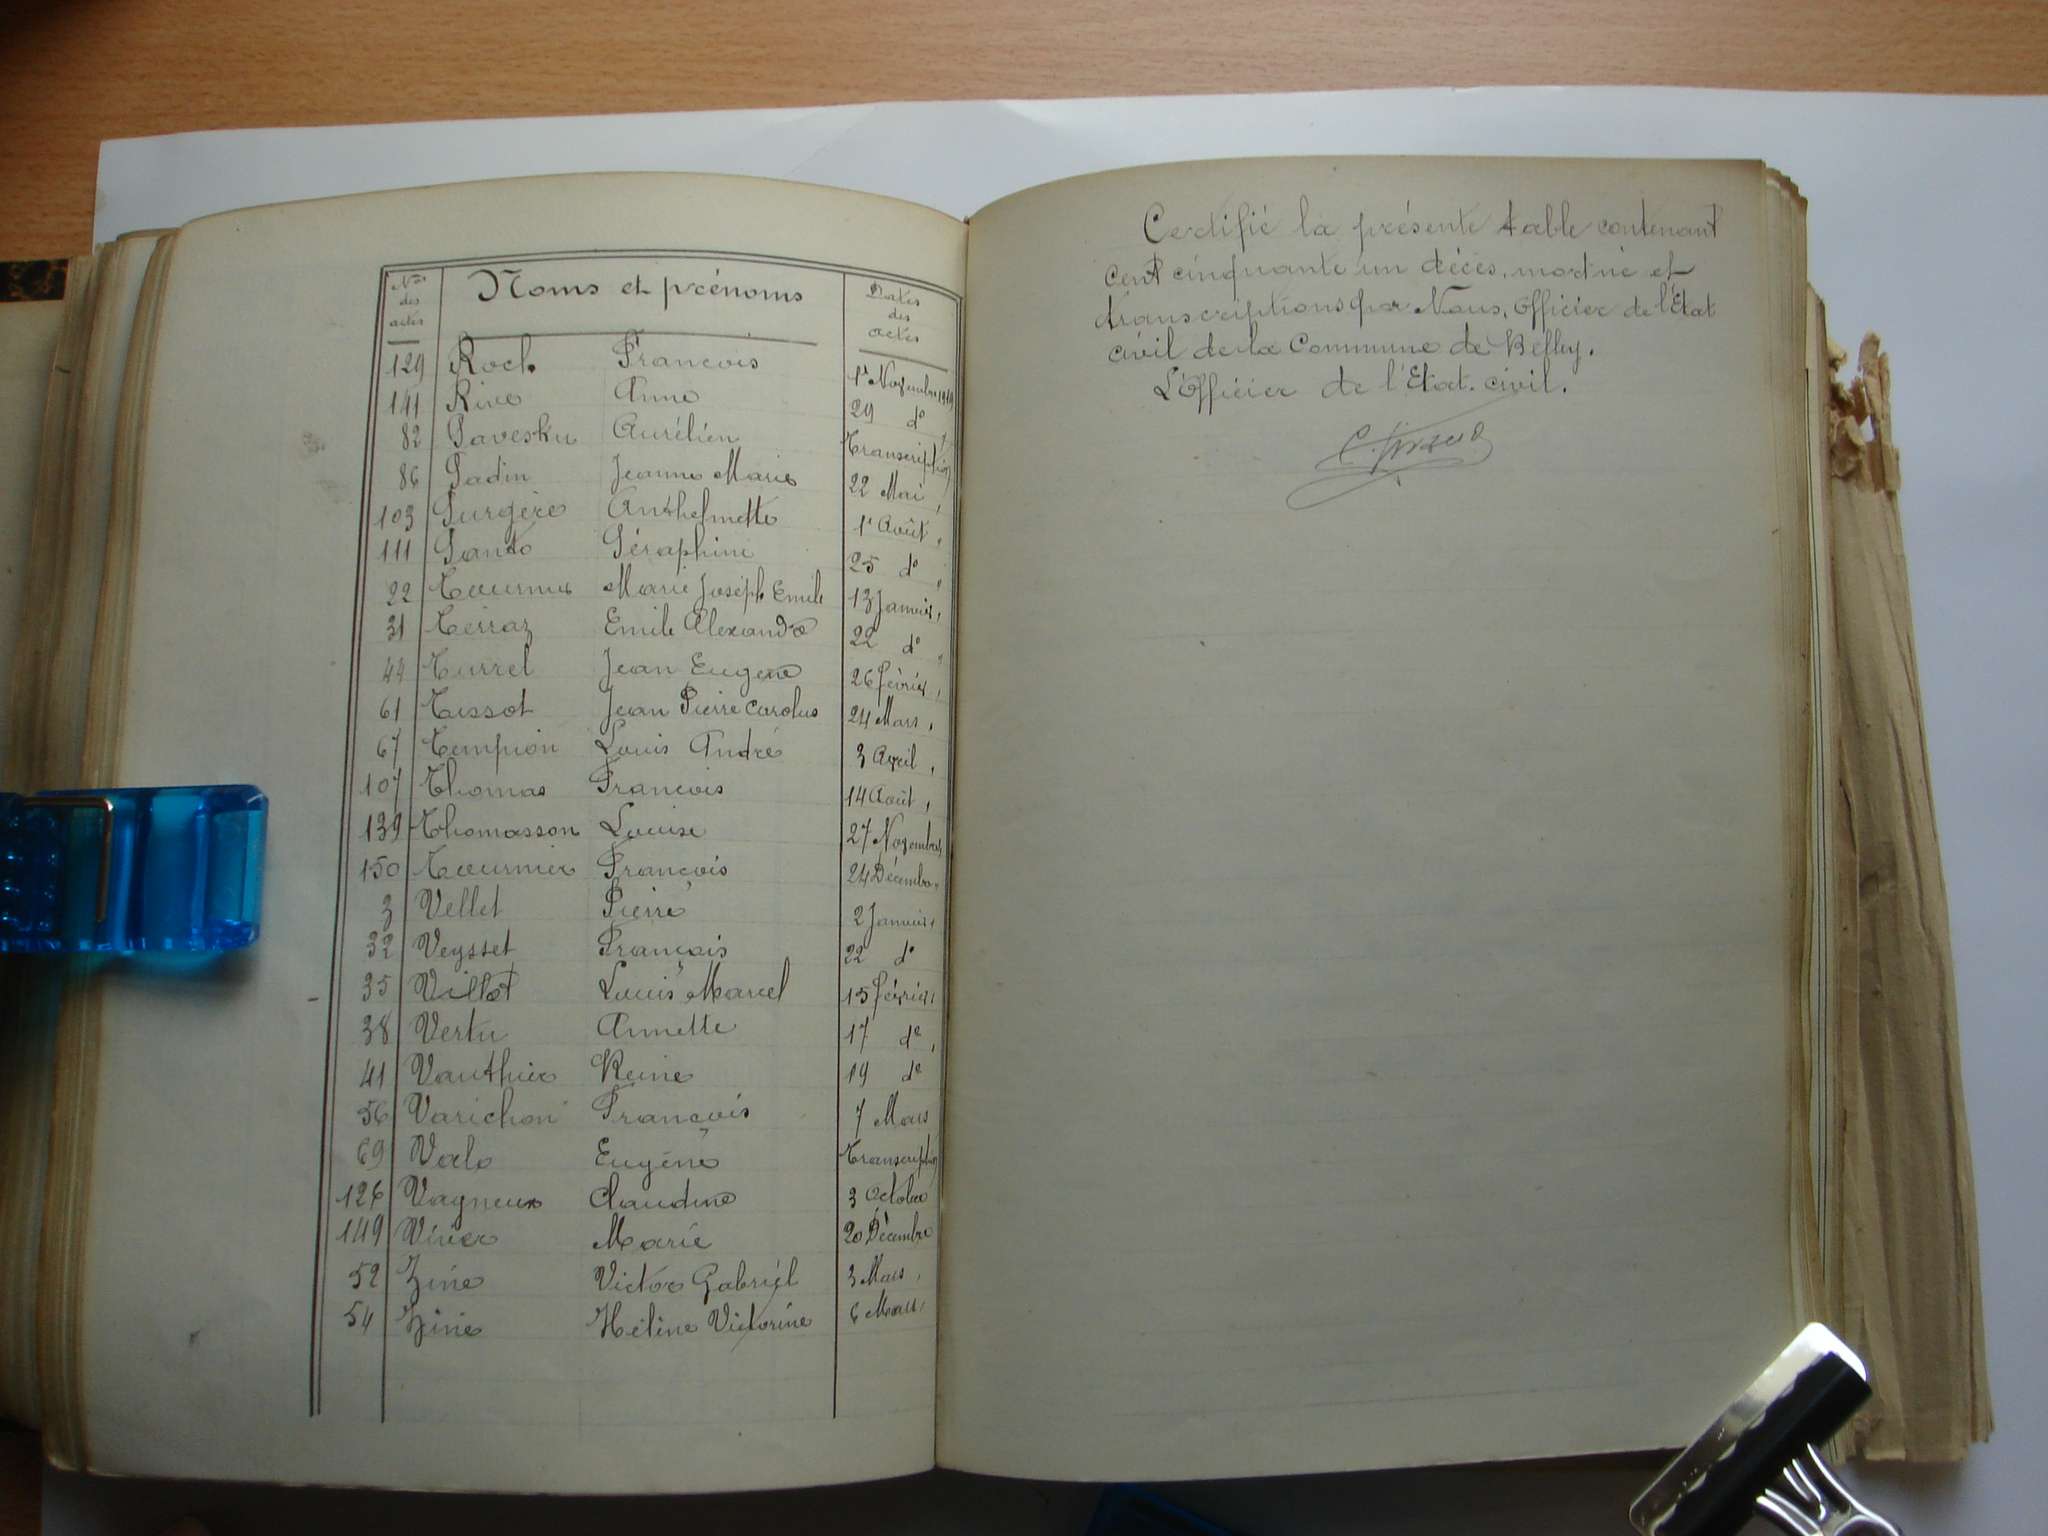 Nos des actes Noms et prénoms Dates des actes
129 Roch François 1er Novembre 1919
141 Rive Anna 29 do
82 Savesku Aurélien Transcription
86 Sadin Jeanne Marie 22 Mai
103 Surgère Anthelmette 1er Août
111 Santo Séraphine 25 do
22 Tournier Marie Joseph Emile 13 Janvier
31 Terraz Emile Alexandre 22 do
44 Turrel Jean Eugène 26 Février
61 Tissot Jean Pierre Carolus 24 Mars
67 Tempion Louis André 3 Avril
107 Thomas François 14 Août
139 Thomasson Louise 27 Novembre
150 Tournier François 24 Décembre
3 Vellet Pierre 2 Janvier
32 Veysset François 22 do
35 Villot Louis Marcel 15 Février
38 Vertu Annette 17 do
41 Vauthier Reine 19 do
56 Varichon François 7 Mars
69 Valo Eugène Transcription
126 Vagneux Claudine 3 Octobre
149 Vivier Marie 20 Décembre
52 Zine Victor Gabriel 3 Mars
54 Zine Hélène Victorine 6 Mars
Certifié la présente table contenant
cent cinquante un décès, mort né et
transcriptions par Nous, Officier de l'Etat
civil de la Commune de Belley.
L'Officier de l'Etat civil.